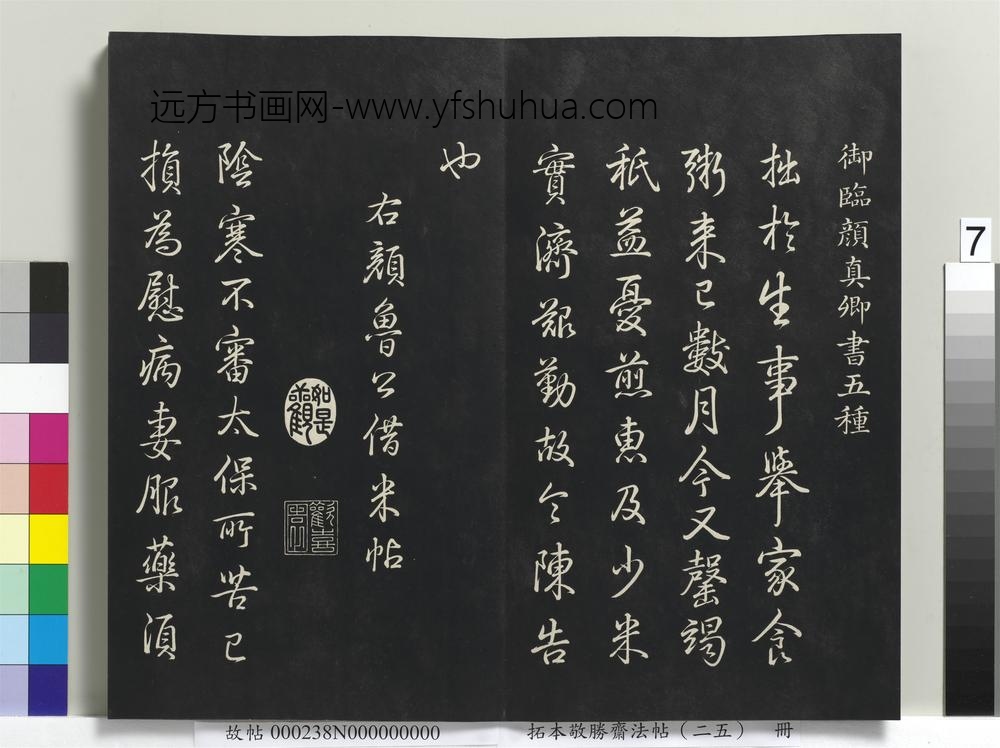 远方书画网-www.yfshuhua.com
御臨顔真卿書五種
拙於生事舉家食
粥来已數月今又罄竭
秖益憂煎恵及少米
實濟艱勤故令陳告
也
右顔魯公借米帖
如是觀
陰寒不審太保所苦已
損為慰病妻服藥湏
7
故帖 000238N000000000
拓本敬勝齋法帖（二五） 冊